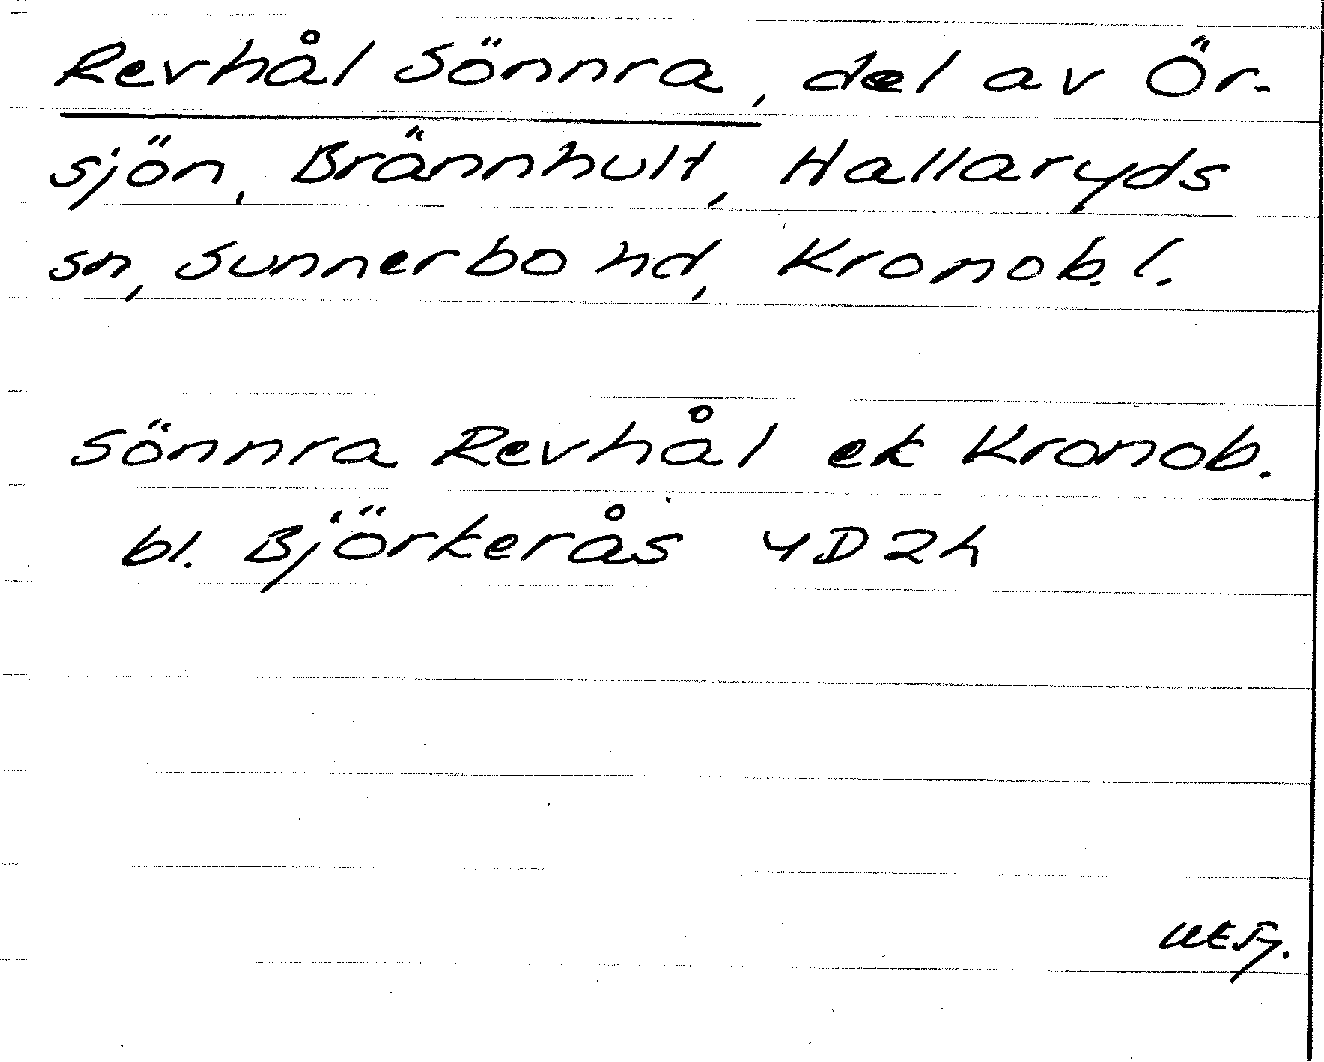 Revhål Sönnra, del av Ör-
sjön, Brännhult, Hallaryds
sn, Sunnerbo hd, Kronob. l.
Sönnra Revhål ek Kronob.
bl. Björkerås 4D2h